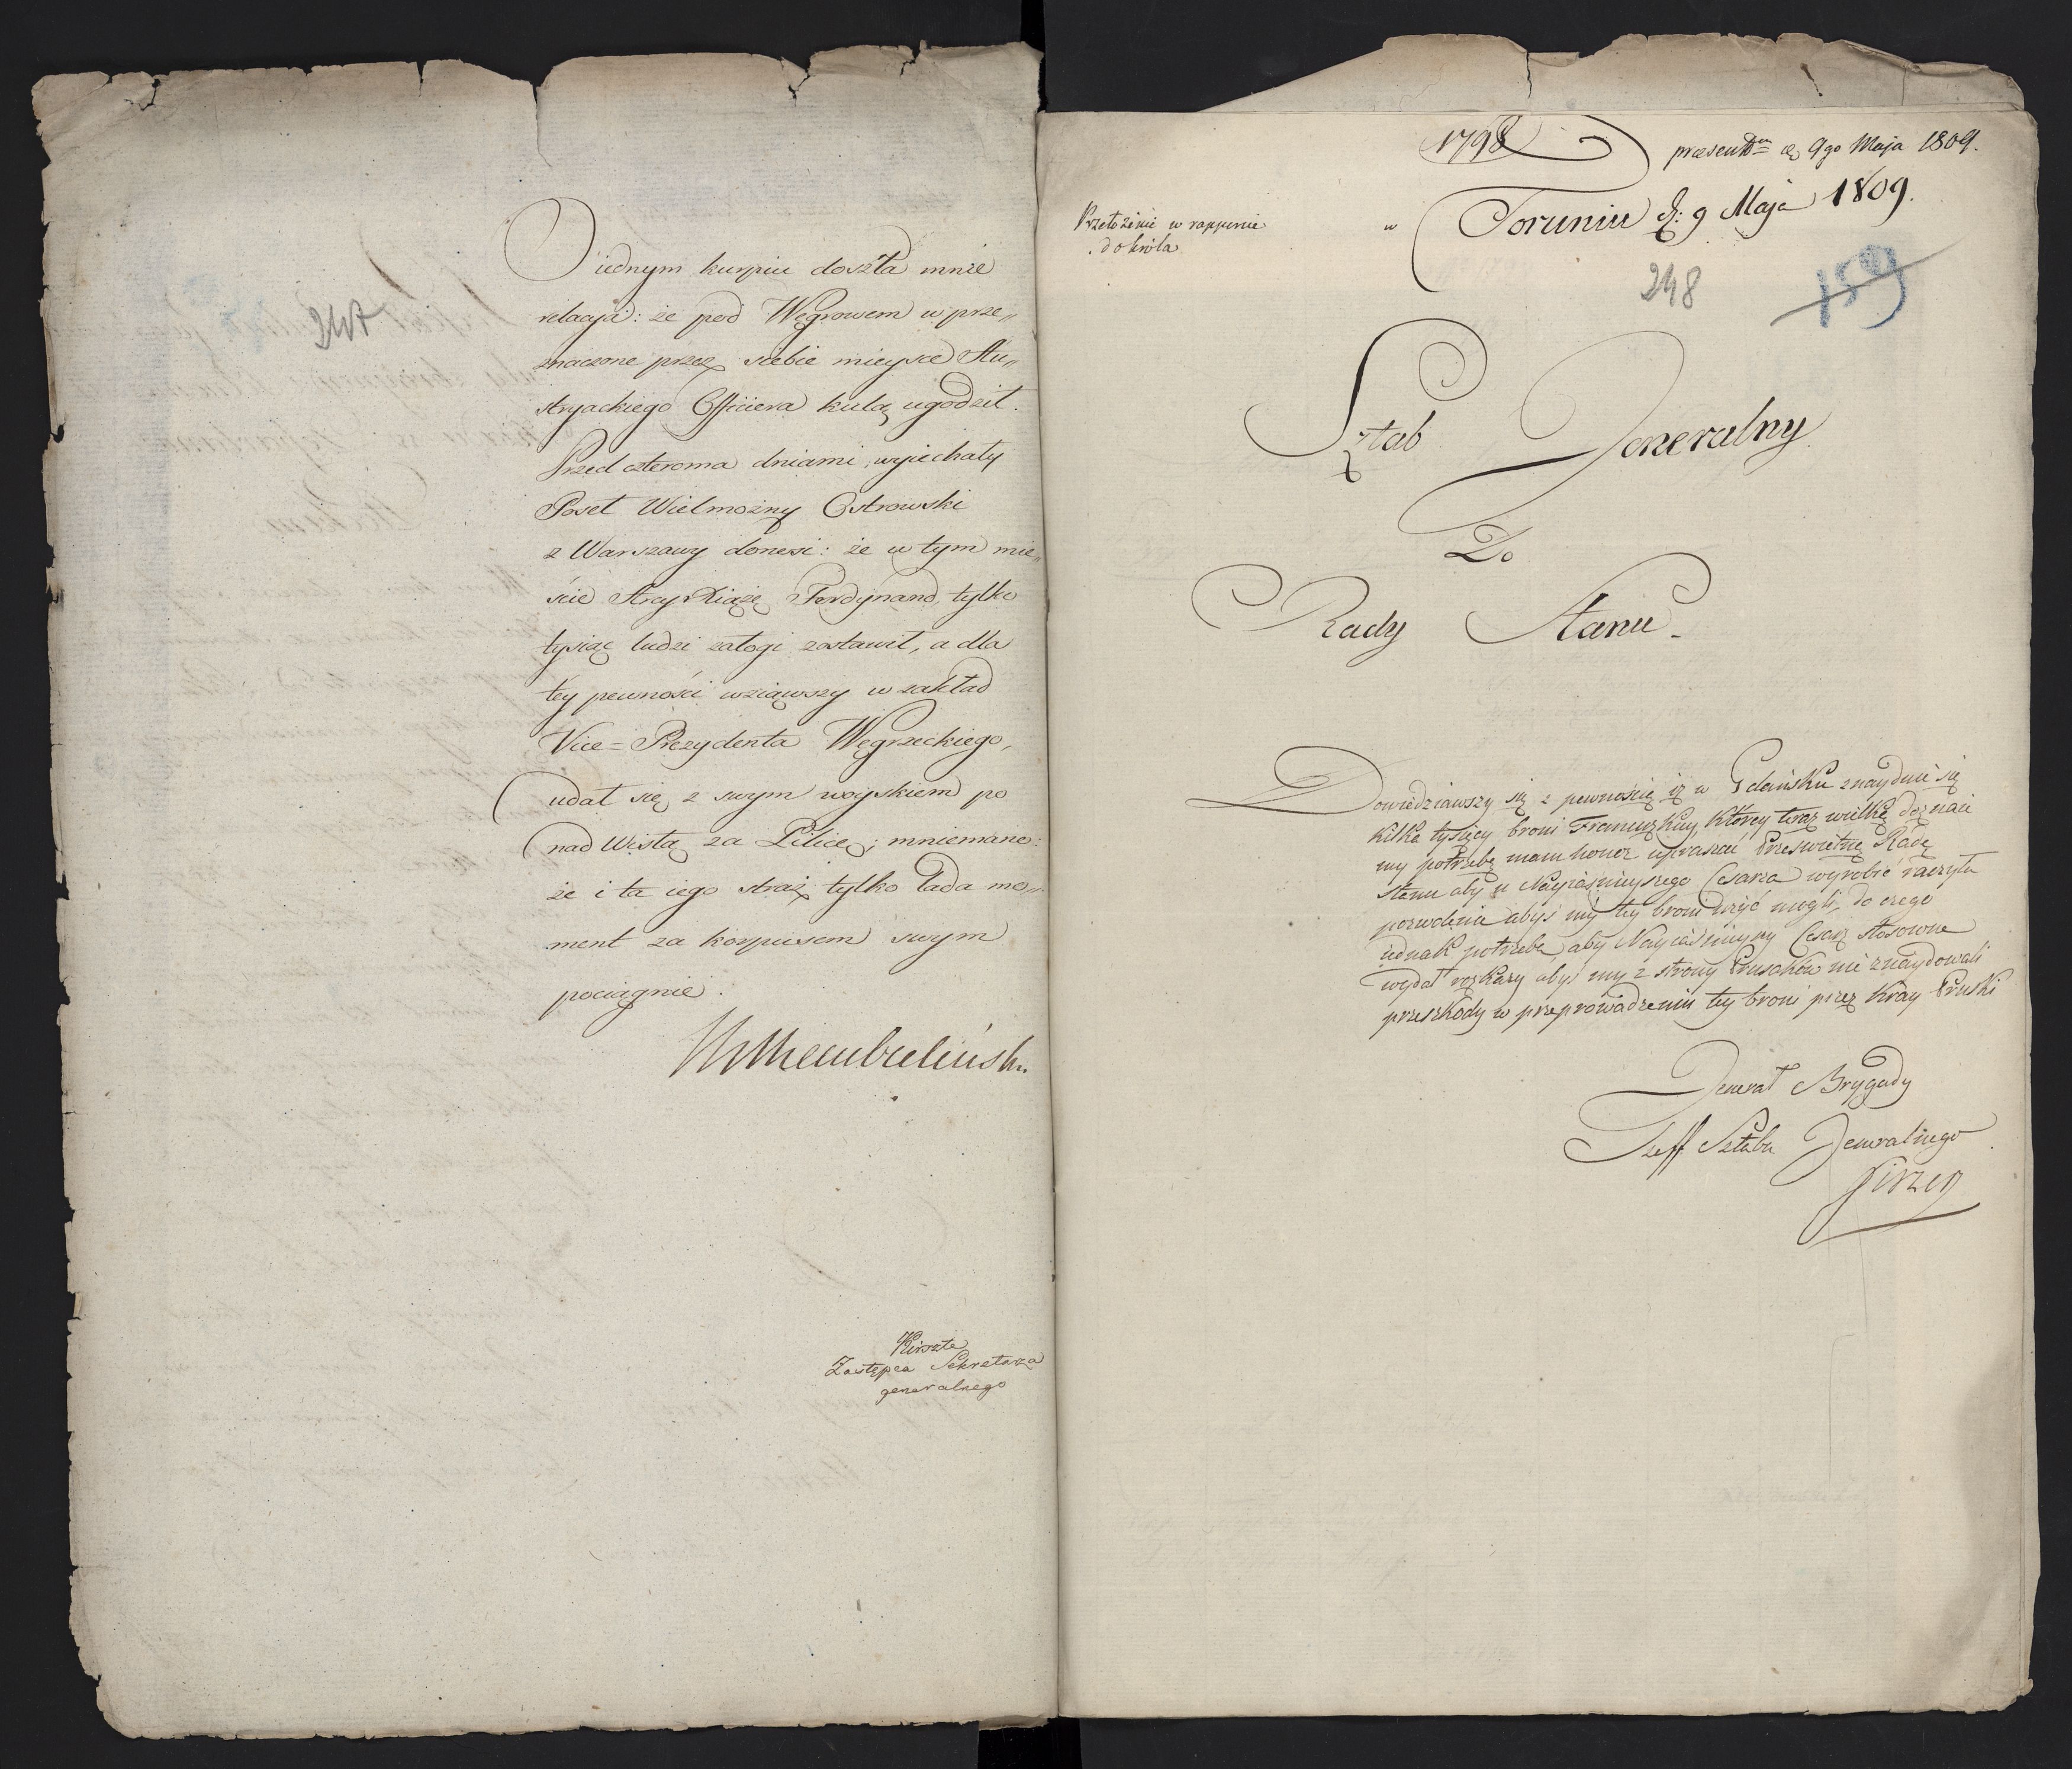 247
O iednym kurpiu doszła mnie
relacyia: że pod Węgrowem w prze„
znaczone przez siebie mieysce Au„
stryackiego Officiera kulą ugodził.
Przed czteroma dniami, wyiechały
Poseł Wielmożny Ostrowski
z Warszawy donosi: że w tym mie„
ście Arcy Xiąże Ferdynand, tylko
tysiąc ludzi załogi zostawił, a dla
tey pewności wziąwszy w zakład
Vice=Prezydenta Węgrzeckiego,
udał się z swym woyskiem po
nad Wisłą za Pilicę; mniemano:
że i ta iego straż tylko lada mo„
ment za korpusem swym
pociągnie.
Rembieliński
Zastępca Sekretarza
generalnego
1798
praesentm d. 9go Maja 1809.
Przełożenie w rapporcie
do króla
w Toruniu d: 9 Maja 1809.
248
159
Sztab Jeneralny
Do
Rady Stanu
Dowiedziawszy się z pewnością iż w Gdańsku znayduie się
kilka tysięcy broni Francuzkiey, którey teraz wielką doznaie
my potrzebę mam honor upraszać Prześwietną Radę
Stanu aby u Nayiaśnieyszego Cesarza wyrobić raczyła
pozwolenie abyś my tey broni użyć mogli, do czego
iednak potrzeba, aby Nayiaśnieyszy Cesarz stosowne
wydał rozkazy abyś my z strony Prusaków nie znaydowali
przeszkody w przeprowadzeniu tey broni przez Kray Pruski
Jenerał Brygady
Szeff Sztabu Jeneralnego
Fiszer